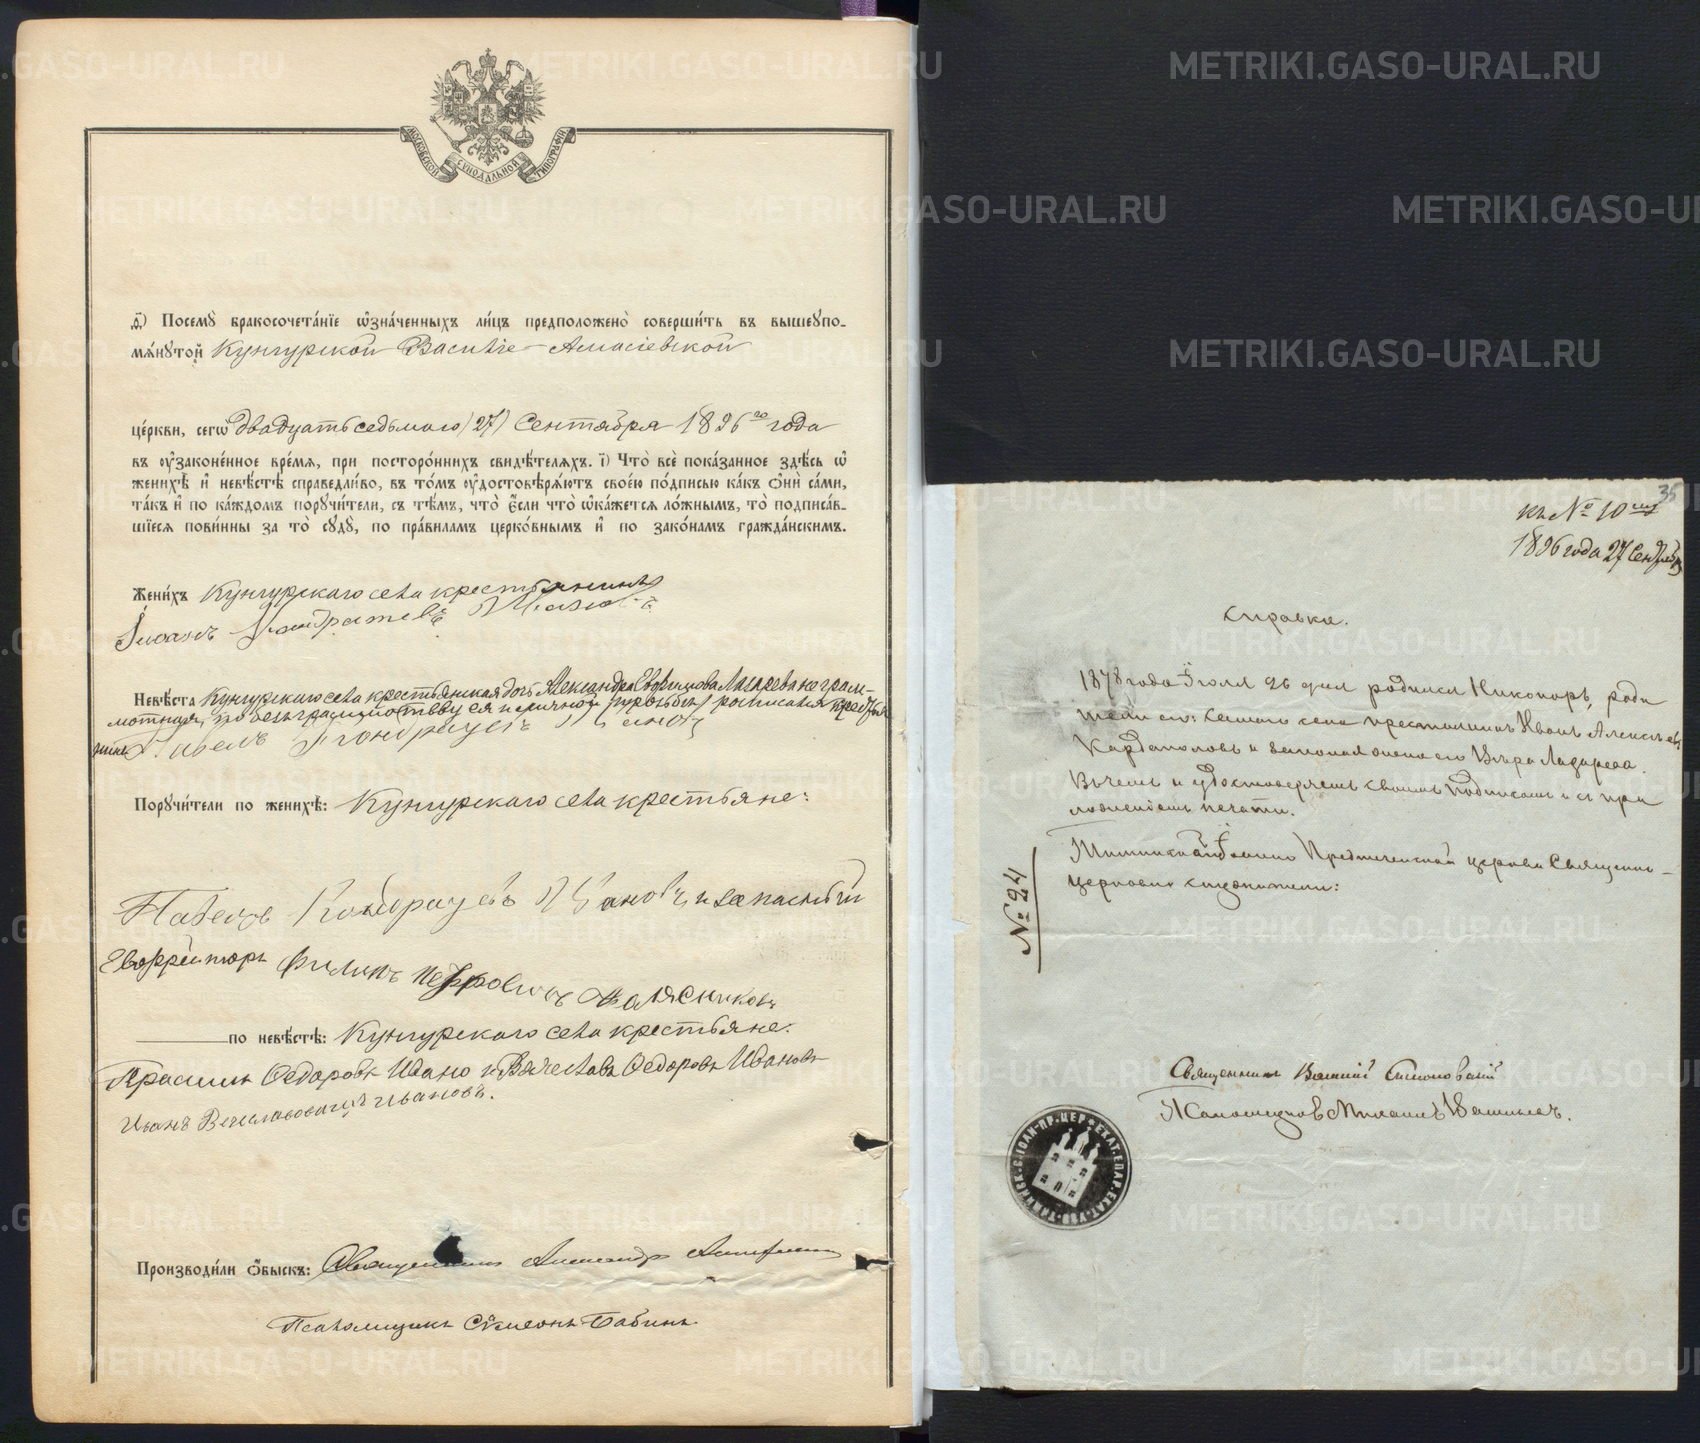 МОСКОВСКОЙ СУНОДАЛЬНОЙ ТИПОГРАФІИ
ѳ҃) Посемꙋ̀ бракосочета́нїе ѡ҆зна́ченныхъ ли́цъ предположено̀ соверши́ть въ вышеꙋпо-
мѧ́нꙋтой Кунгурской Василіе-Амасіевской
це́ркви, сегѡ̀ двадцать седьмого (27) Сентября 1896го года
въ ᲂу҆зако́не́нное вре́мѧ, при посторо́ннихъ свидѣ́телѧхъ. і҃) Что̀ всѐ пока́занное здѣ́сь ѡ҆
женихѣ̀ и҆ невѣ́стѣ справедли́во, въ то́мъ ᲂу҆достовѣрѧ́ютъ свое́ю по́дписью ка́къ ѻ҆нѝ са́ми,
та́къ и҆ по ка́ждомъ порꙋчи́тели, съ тѣ́мъ, что̀ є҆́сли что̀ ѡ҆ка́жется ло́жнымъ, то̀ подписа́в-
шїесѧ пови́нны за то̀ сꙋдꙋ̀, по пра́виламъ церко́внымъ и҆ по зако́намъ гражда́нскимъ.
Жени́хъ Кунгурскаго села крестьянинъ
Іиванъ Кондратевъ
Невѣ́ста Кунгурскаго села крестьянская дочь Александра Лазарева неграм-
мотная, по безграмотству ея и личной просьбе росписался крестья
нинъ Павелъ Кондрацевъ
Порꙋчи́тели по женихѣ̀: Кунгурскаго села крестьяне:
Павелъ Кондрацевъ Ивановъ и запасный
Ефрейторъ Филипъ Петровичъ
по невѣ́стѣ: Кунгурскаго села крестьяне.
Федоровъ Ивано и Вячеславъ Федоровъ Ивановъ
Иванъ Вячеславовичъ Ивановъ.
Производи́ли ѻ҆́быскъ: Священникъ Александръ
Псаломщикъ Сѵмеонъ Бабинъ
35
къ № 10му
1896 года 27 Сентября
Справка.
1878 года Іюля 26 дня родился Никоноръ, роди
тели его: крестьянинъ Иванъ Алексѣевъ
Кардаполовъ и законная жена его Вѣра Лазарева.
Въ чемъ и удостоверяемъ своимъ подписомъ и съ при
ложеніемъ печати.
Предтеченской церкви Священно-
церковно служители:
№ 24
Священникъ Василій
Псаломщикъ Михаилъ Васильевъ.
METRIKI.GASO-URAL.RU